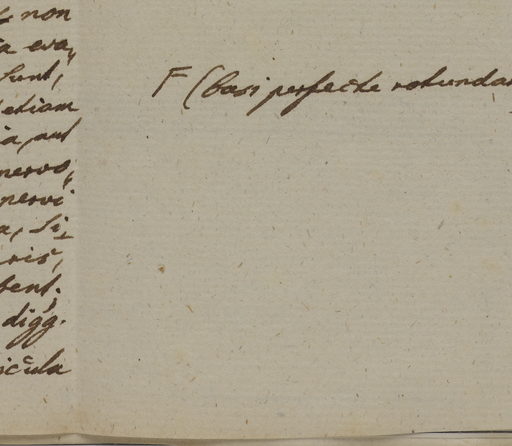 non
eva„
sunt,
etiam
ia, aut
nervo„
nervi
a, Si„
ris,
bent;
digg.
icula
F (basi perfecte rotundat